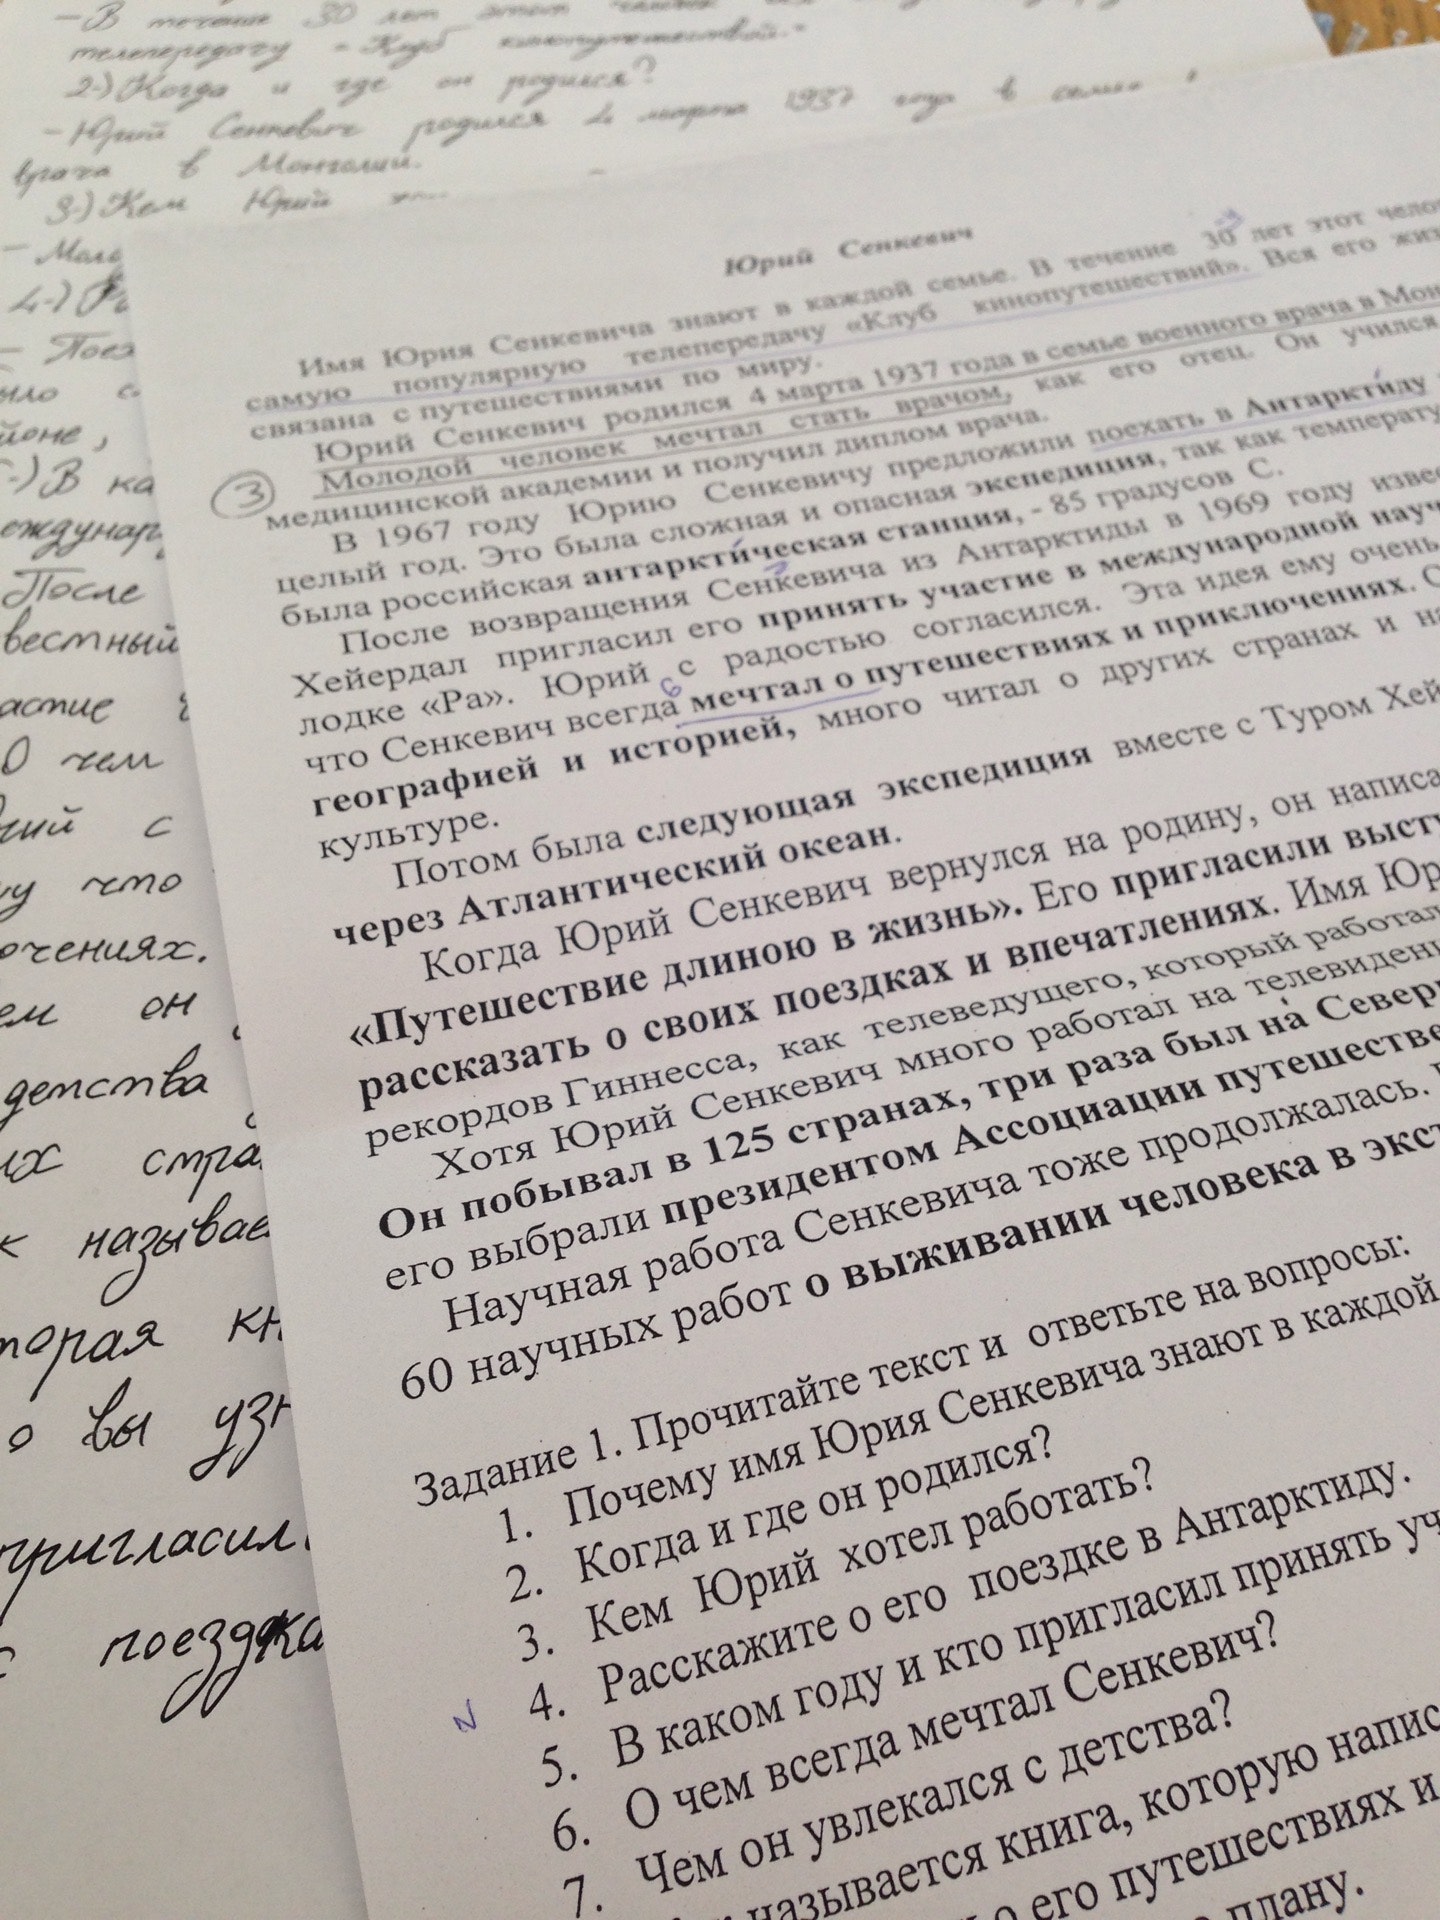 - В течение 30 лет этот человек
телепередачу "Клуб кинопутешествий."
2-) Когда и где он родился?
- Юрий Сенкевич родился 4 марта 1937 года в семье
врача в Монголии.
3-) Кем Юрий
-
4-)
-
было

5-) В
После
вестный
астие
О чем
с
что
он
детства
называе
торая кн
о вы узн
пригласил
поездка
Юрий Сенкевич
Имя Юрия Сенкевича знают в каждой семье. В течение 30 лет этот чело
самую популярную телепередачу «Клуб кинопутешествий». Вся его жиз
связана с путешествиями по миру.
Юрий Сенкевич родился 4 марта 1937 года в семье военного врача в Мон
3 Молодой человек мечтал стать врачом, как его отец. Он учился
медицинской академии и получил диплом врача.
В 1967 году Юрию Сенкевичу предложили поехать в Антарктиду
целый год. Это была сложная и опасная экспедиция, так как температу
была российская антарктическая станция, - 85 градусов С.
После возвращения Сенкевича из Антарктиды в 1969 году извес
Хейердал пригласил его принять участие в международной науч
лодке «Ра». Юрий с радостью согласился. Эта идея ему очень
что Сенкевич всегда 6 мечтал о путешествиях и приключениях. С
географией и историей, много читал о других странах и на
культуре.
Потом была следующая экспедиция вместе с Туром Хей
через Атлантический океан.
Когда Юрий Сенкевич вернулся на родину, он написа
«Путешествие длиною в жизнь». Его пригласили высту
рассказать о своих поездках и впечатлениях. Имя Юр
рекордов Гиннесса, как телеведущего, который работал
Хотя Юрий Сенкевич много работал на телевиден
Он побывал в 125 странах, три раза был на Север
его выбрали президентом Ассоциации путешестве
Научная работа Сенкевича тоже продолжалась.
60 научных работ о выживании человека в экст
Задание 1. Прочитайте текст и ответьте на вопросы:
1. Почему имя Юрия Сенкевича знают в каждой
2. Когда и где он родился?
3. Кем Юрий хотел работать?
4. Расскажите о его поездке в Антарктиду.
5. В каком году и кто пригласил принять уч
6. О чем всегда мечтал Сенкевич?
7. Чем он увлекался с детства?
называется книга, которую напис
о его путешествиях и
плану.